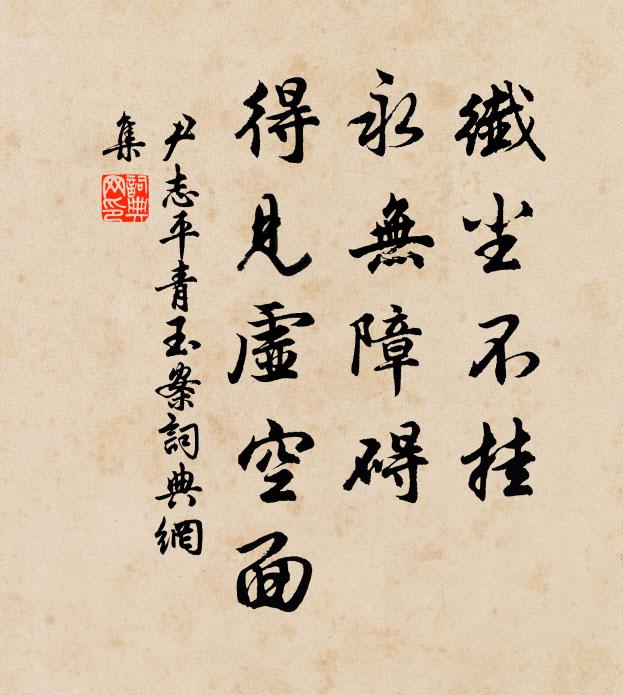 纖尘不挂
永無障碍
得見虛空面
尹志平青玉案詞典網
集
詞典网印